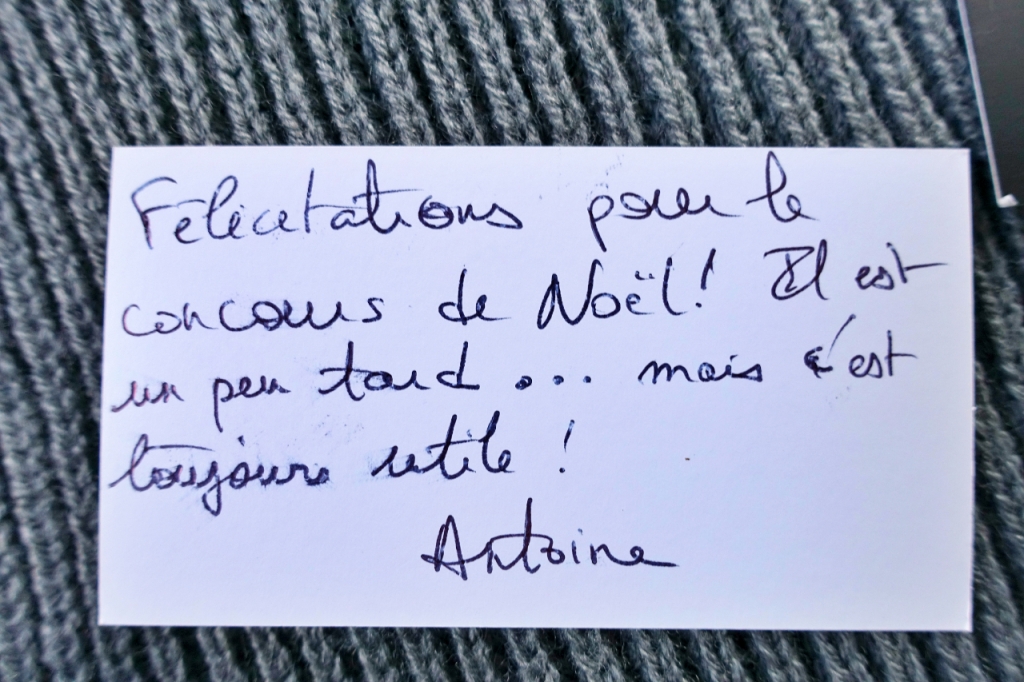 Félicitations pour le
concours de Noël! Il est
un peu tard ... mais c'est
toujours utile !
Antoine